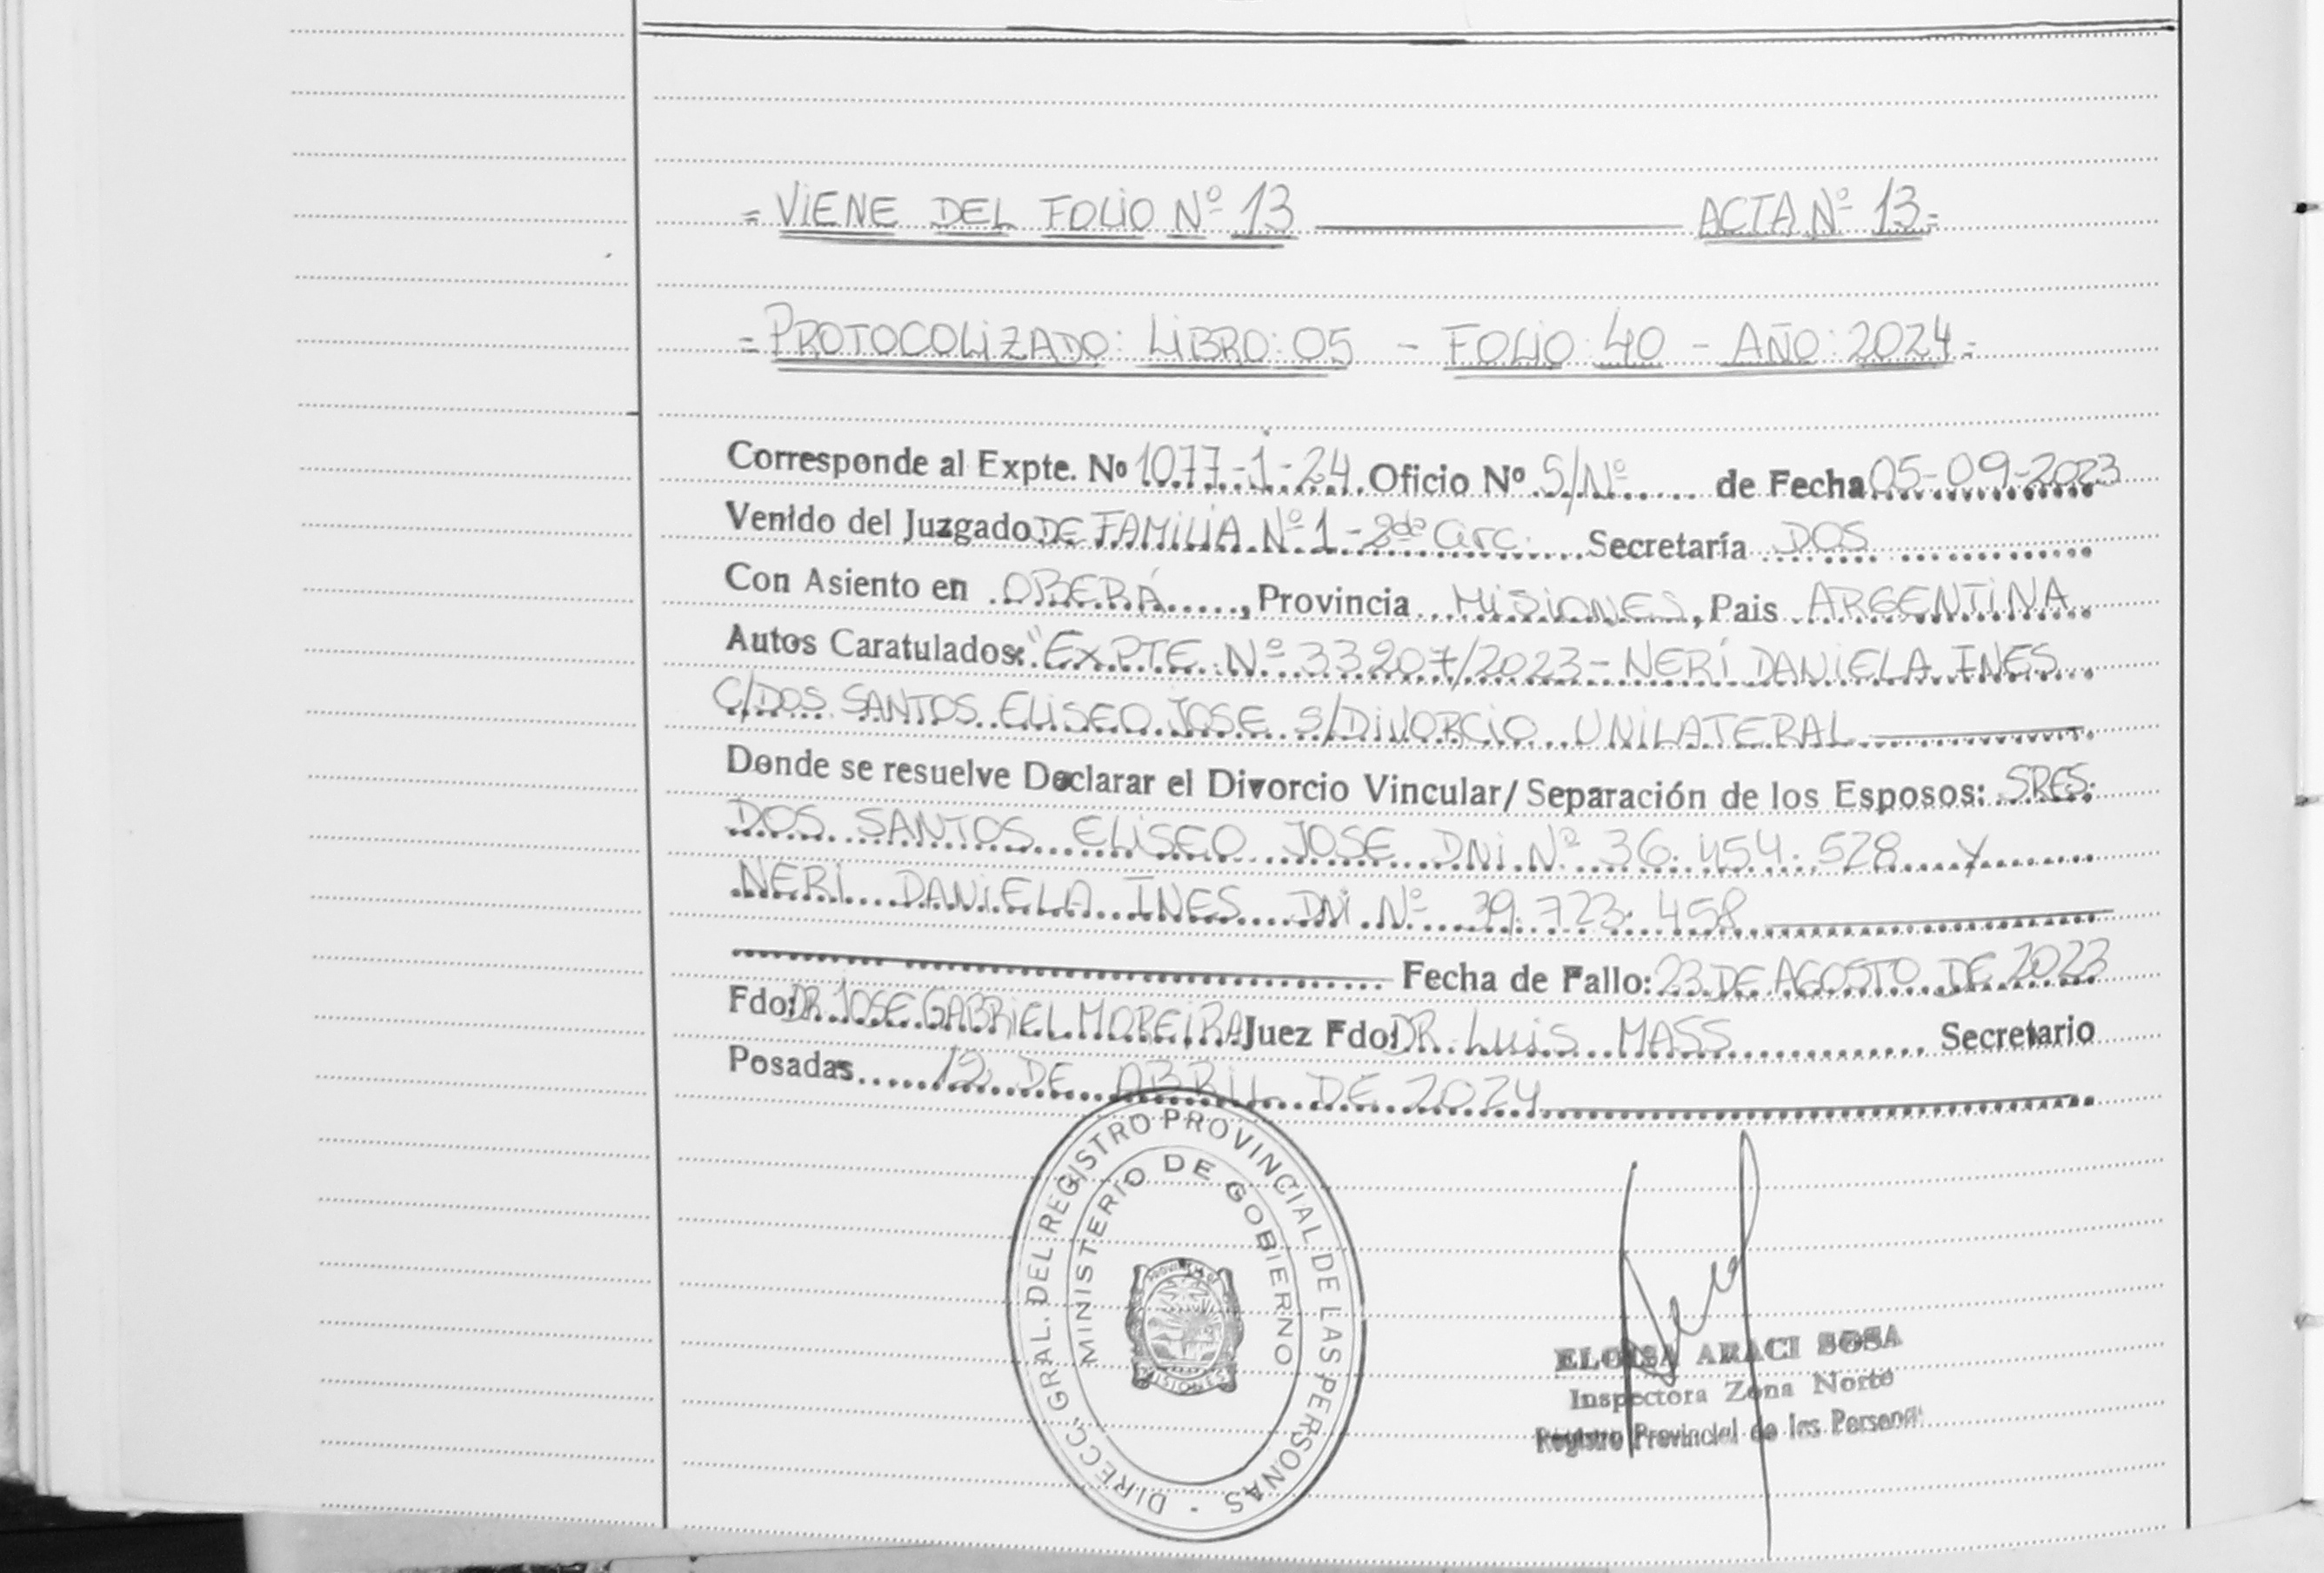 = VIENE DEL FOLIO Nº 13 ACTA Nº 13=
= PROTOCOLIZADO: LIBRO: 05 - FOLIO: 40 - AÑO: 2024=
Corresponde al Expte. Nº 1077-1-24 Oficio Nº S/Nº de Fecha 05-09-2023
Venido del Juzgado DE FAMILIA Nº 1 - 2da Circ. Secretaría DOS
Con Asiento en OBERÁ, Provincia MISIONES, Pais ARGENTINA
Autos Caratulados: "EXPTE Nº 33207/2023 - NERI DANIELA INES
C/DOS SANTOS ELISEO JOSE S/DIVORCIO UNILATERAL
Donde se resuelve Declarar el Divorcio Vincular/ Separación de los Esposos: SRES.
DOS SANTOS ELISEO JOSE DNI Nº 36.454.528 Y
NERI DANIELA INES DNI Nº 39.723.458
Fecha de Fallo: 23 DE AGOSTO DE 2023
Fdo: DR. JOSE GABRIEL MOREIRA Juez Fdo: DR. LUIS MASS Secretario
Posadas 12 DE ABRIL DE 2024
DIRECC. GRAL. DEL REGISTRO PROVINCIAL DE LAS PERSONAS -
MINISTERIO DE GOBIERNO
MISIONES
ELOISA ARACI SOSA
Inspectora Zona Norte
Registro Provincial de las Personas